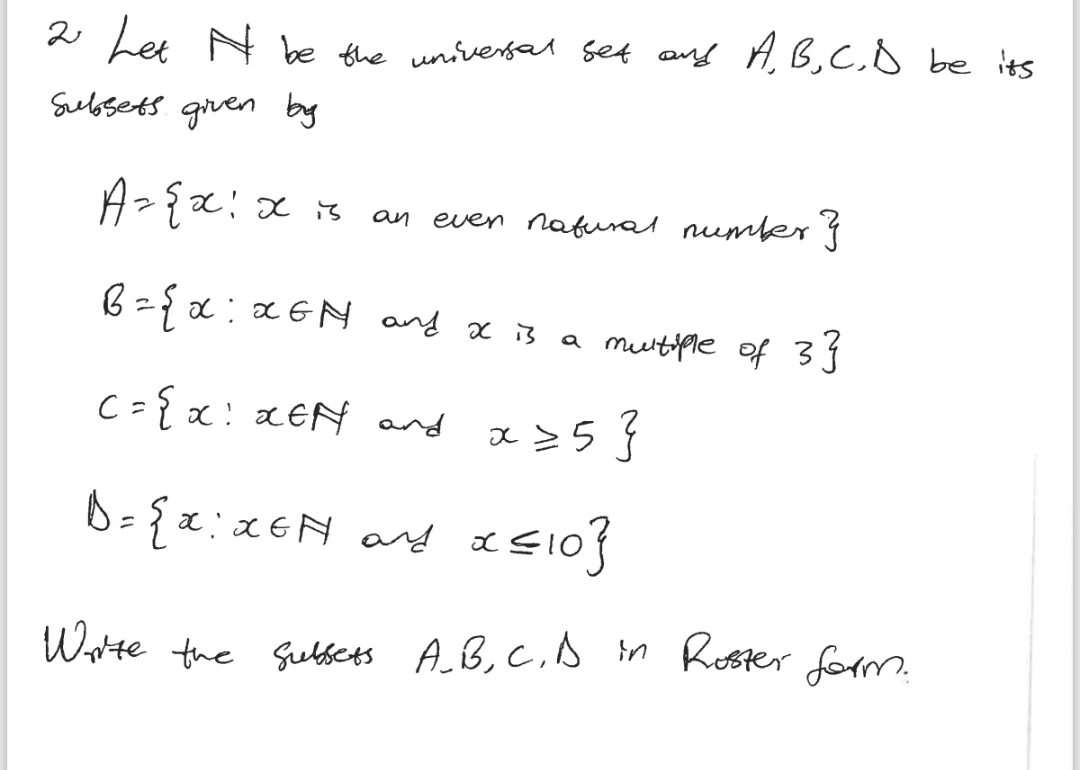 2. Let ℕ be the universal set and A, B, C, D be its
subsets given by
A = {x: x is an even natural number}
B = {x: x ∈ ℕ and x is a multiple of 3}
C = {x: x ∈ ℕ and x ≥ 5}
D = {x: x ∈ ℕ and x ≤ 10}
Write the subsets A, B, C, D in Roster form.